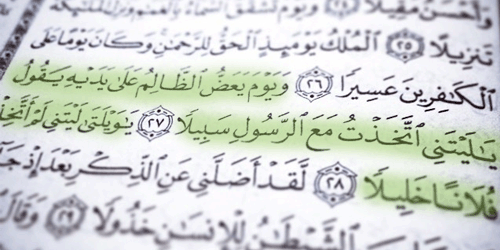 وَأَحْسَنُ مَقِيلًا ٢٤ وَيَوْمَ تَشَقَّقُ ٱلسَّمَآءُ بِٱلْغَمَٰمِ وَنُزِّلَ ٱلْمَلَٰٓئِكَةُ
تَنزِيلًا ٢٥ ٱلْمُلْكُ يَوْمَئِذٍ ٱلْحَقُّ لِلرَّحْمَٰنِ وَكَانَ يَوْمًا عَلَى
ٱلْكَٰفِرِينَ عَسِيرًا ٢٦ وَيَوْمَ يَعَضُّ ٱلظَّالِمُ عَلَىٰ يَدَيْهِ يَقُولُ
يَٰلَيْتَنِي ٱتَّخَذْتُ مَعَ ٱلرَّسُولِ سَبِيلًا ٢٧ يَٰوَيْلَتَىٰ لَيْتَنِي لَمْ أَتَّخِ
فُلَانًا خَلِيلًا ٢٨ لَّقَدْ أَضَلَّنِي عَنِ ٱلذِّكْرِ بَعْدَ إِذْ جَآ
ٱلشَّيْطَٰنُ لِلْإِنسَٰنِ خَذُولًا ٢٩ وَقَالَ